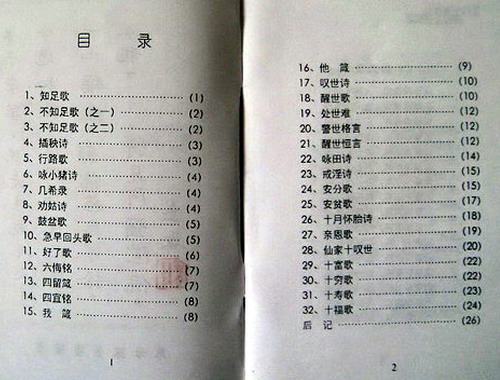 目 录
1、知足歌 (1)
2、不知足歌(之一) (2)
3、不知足歌(之二) (2)
4、插秧诗 (3)
5、行路歌 (3)
6、咏小猪诗 (4)
7、几希录 (4)
8、劝姑诗 (4)
9、鼓盆歌 (5)
10、急早回头歌 (5)
11、好了歌 (6)
12、六悔铭 (7)
13、四留箴 (7)
14、四宜铭 (8)
15、我 箴 (8)
1
16、他 箴 (9)
17、叹世诗 (10)
18、醒世歌 (10)
19、处世难 (12)
20、警世格言 (12)
21、醒世恒言 (12)
22、咏田诗 (14)
23、戒淫诗 (15)
24、安分歌 (15)
25、安贫歌 (17)
26、十月怀胎诗 (18)
27、亲恩歌 (19)
28、仙家十叹世 (20)
29、十富歌 (22)
30、十穷歌 (22)
31、十寿歌 (23)
32、十福歌 (24)
后 记 (26)
2